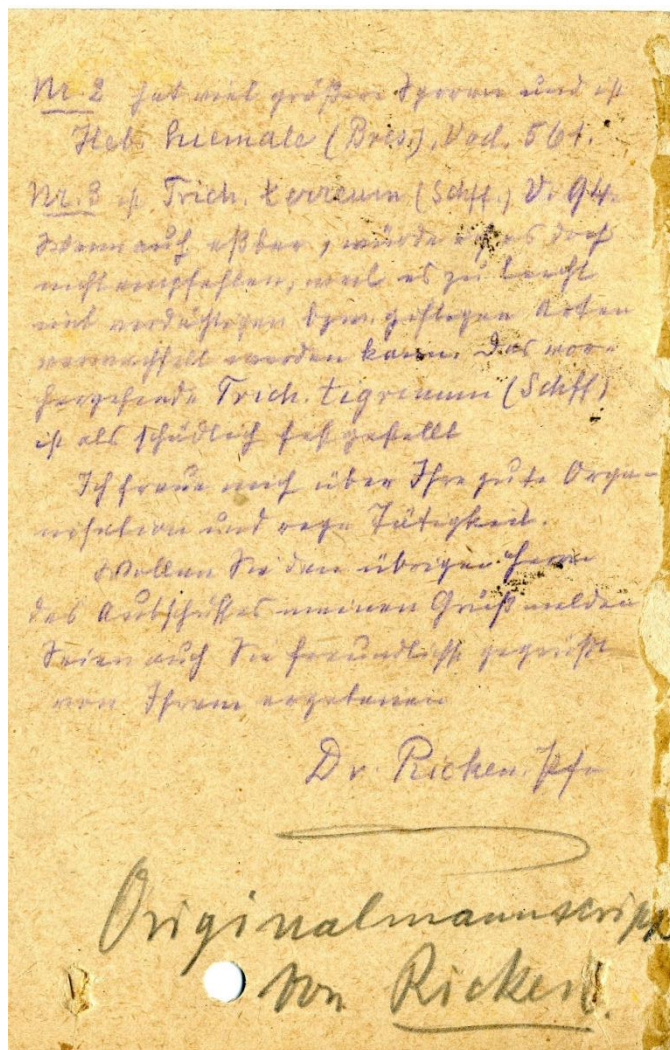 Nr. 2 hat viel größere Sporen und ist
Heb. hiemale (Bres.), Vad. 561.
Nr. 3 ist Trich. terreum (Schff.) V. 94.
Wenn auch eßbar, würde ich es doch
nicht empfehlen, weil es zu leicht
mit verdächtigen bzw. giftigen Arten
verwechselt werden kann. Das vor-
hergehende Trich. tigrinum (Schff)
ist als schädlich festgestellt
Ich freue mich über Ihre gute Orga-
nisation und rege Tätigkeit.
Wollen Sie den übrigen Herrn
des Ausschusses meinen Gruß melden
Seien auch Sie freundlichst gegrüßt
von Ihrem ergebenen
Dr. Ricken. Pfr
Originalmannscript
von Ricken.